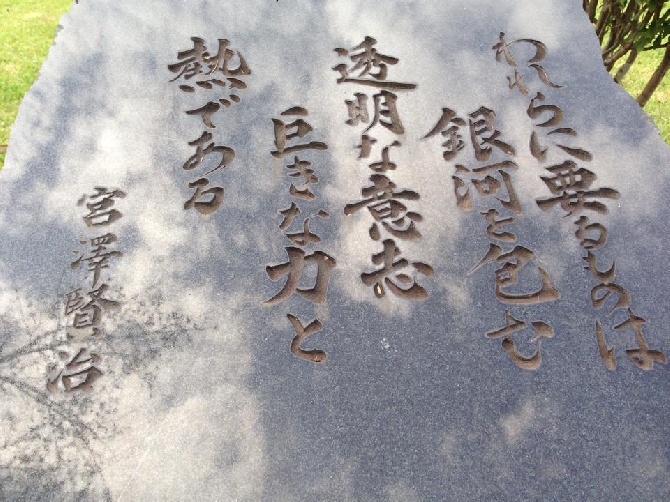 われらに要るものは
銀河を包む
透明な意志
巨きな力と
熱である
宮澤賢治